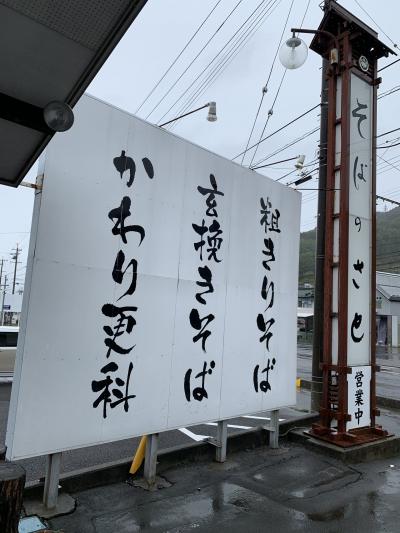 粗きりそば
玄挽きそば
かわり更科
そばのさと
営業中